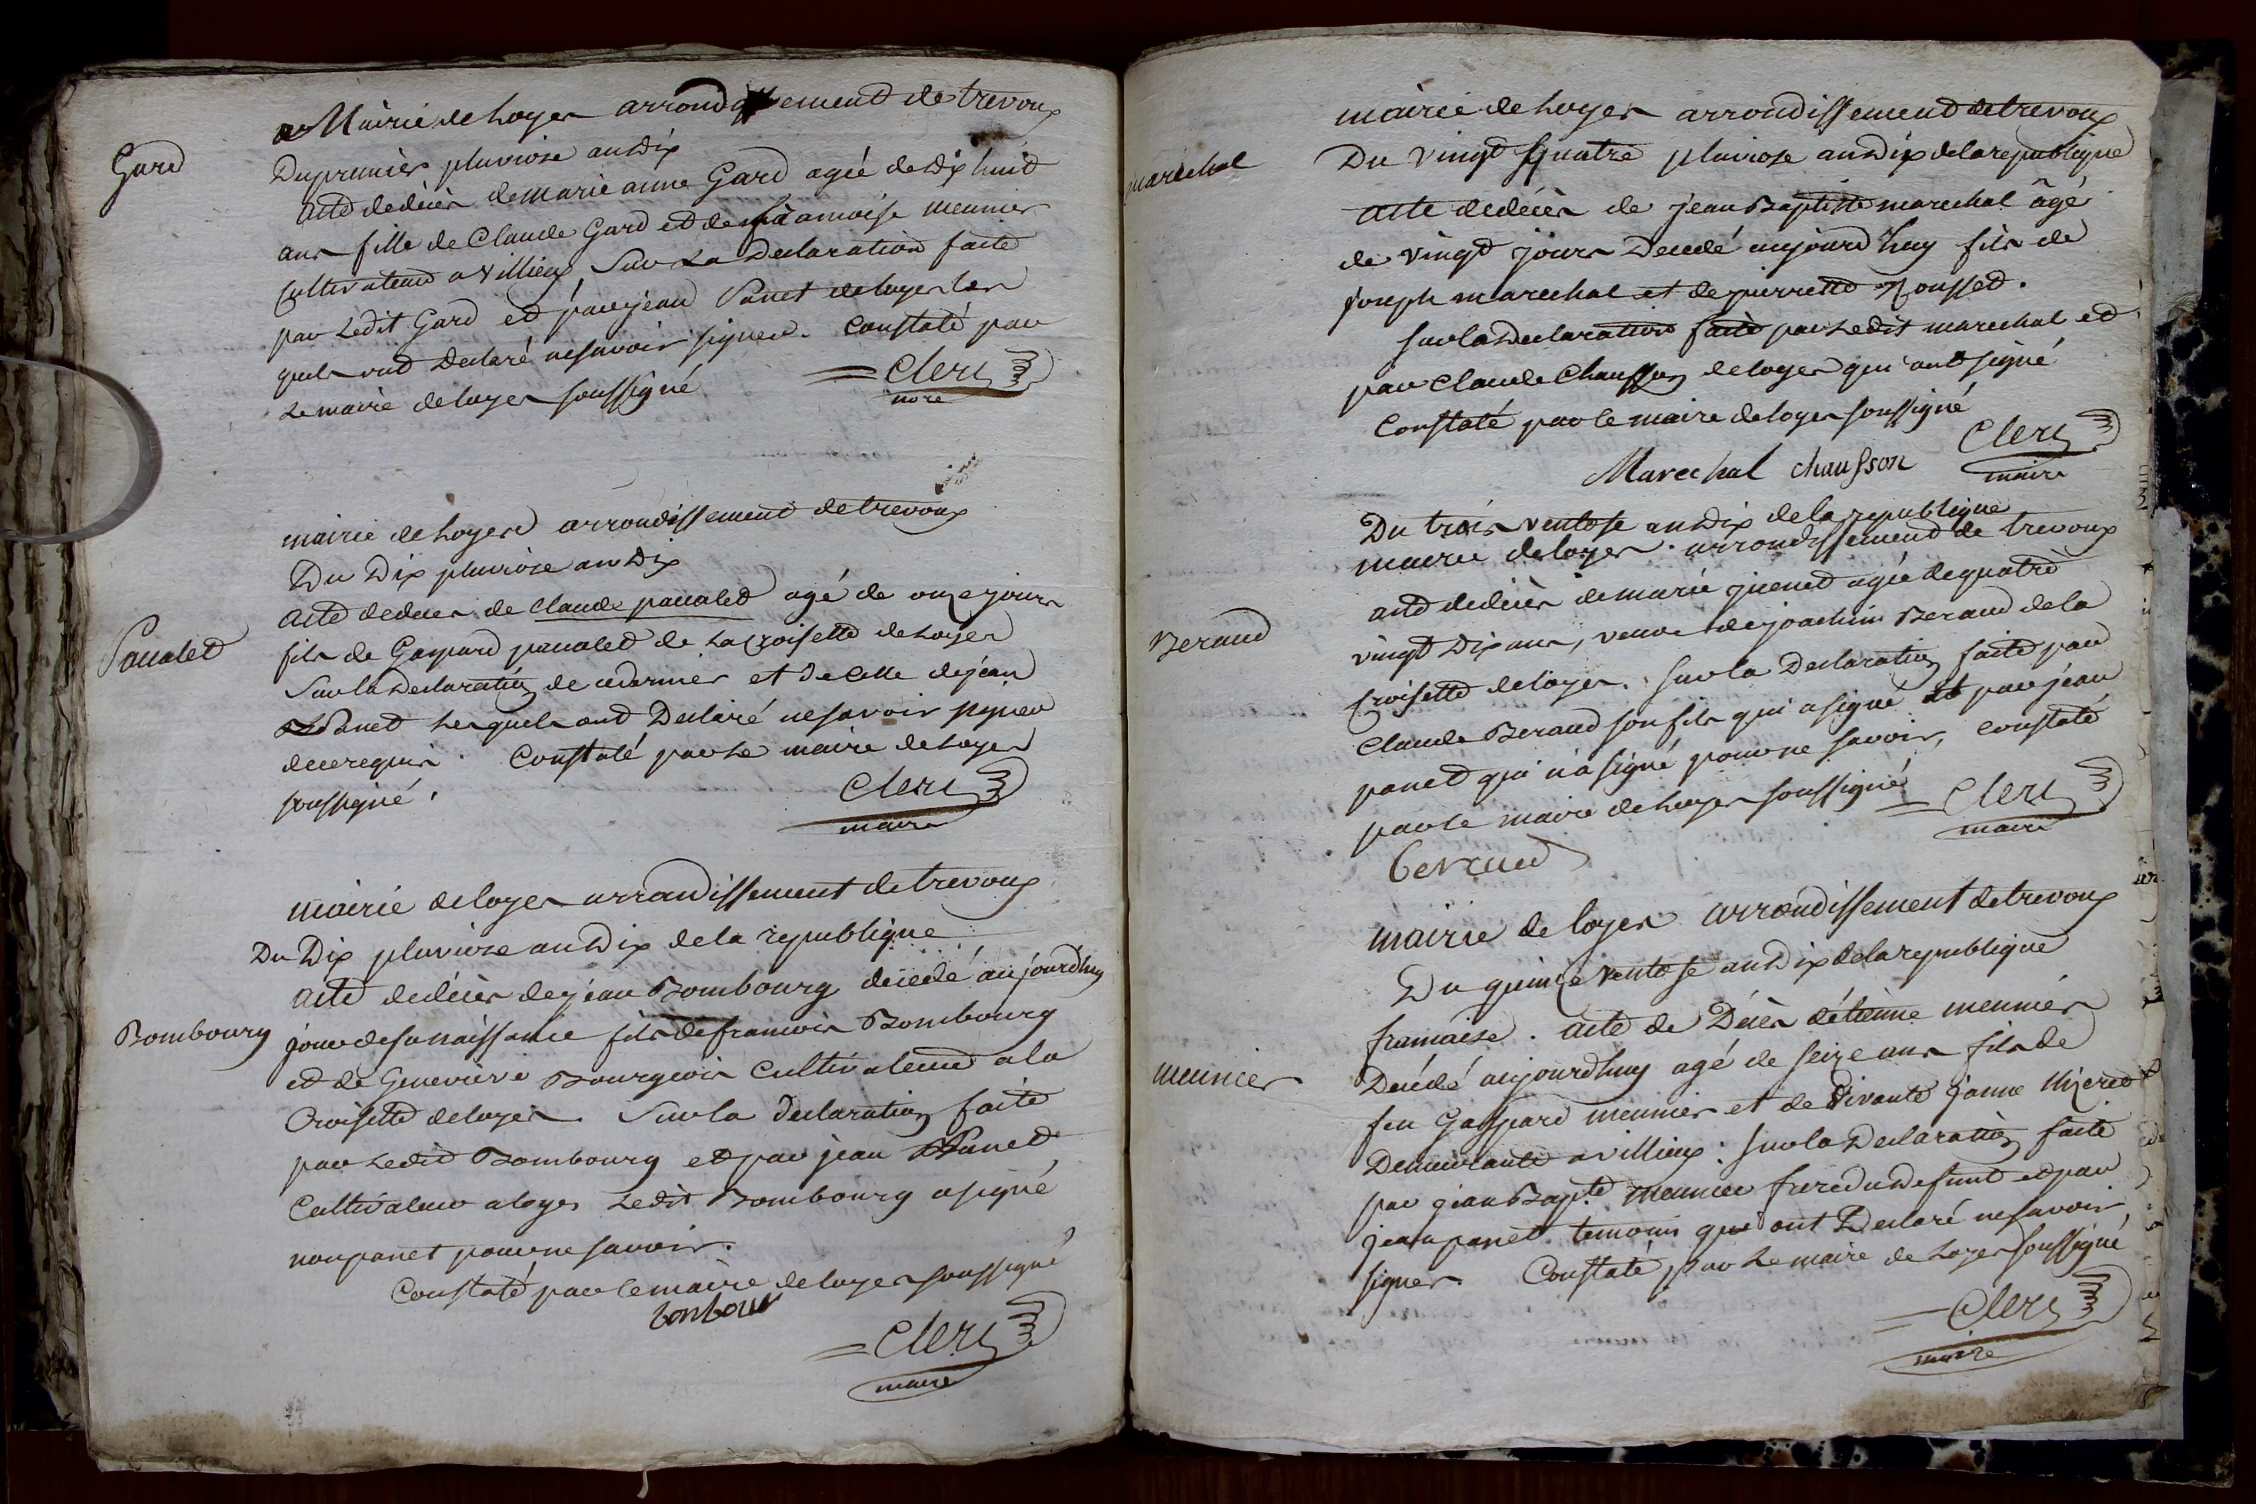 Mairie de Loyes arrondissement de trevoux
Gard
Du premier pluviose an dix
acte de décès de marie anne Gard agée de dix huit
ans fille de Claude Gard et de francoise meunier
Cultivateur a villieux Sur La Declaration faite
par Ledit Gard et par jean Panet de loyes les
quels ont Declaré ne savoir signer. Constaté par
Le maire de loyes soussigné
Clerc
maire
mairie de Loyes arrondissement de trevoux
Du Dix pluviose an Dix
acte de deces de Claude panalet agé de onze jours
Panalet
fils de Gaspard panalet de La Croisette de Loyes
Sur la declaration de ce dernier et de celle de jean
Panet Lesquels ont Declaré ne savoir signer
de ce requis. Constaté par Le maire de Loyes
soussigné.
Clerc
maire
mairie de loyes arrondissement de trevoux
Du Dix pluviose an dix de la republique
acte de décès de jean Bombourg décédé aujourdhuy
Bombourg
jour de sa naissance fils de francois Bombourg
et de Geneviève Bourgeois Cultivateur a la
Croisette de loyes. Sur la declaration faite
par Ledit Bombourg et par jean Panet
Cultivateur a loyes Ledit Bombourg a signé
non panet pour ne savoir.
Constaté par le maire de loyes soussigné
bonbour
Clerc
maire
mairie de Loyes arrondissement de trevoux
marechal
Du vingt quatre pluviose an dix de la republique
acte de décès de jean Baptiste marechal âgé
de vingt jours Decedé aujourd'huy fils de
joseph marechal et de pierrette Rousset.
sur la declaration faite par Ledit marechal et
par Claude Chausson de loyes qui ont signé
Constaté par le maire de loyes soussigné
Clerc
maire
Marechal chausson
Du trois ventose an dix de la republique
mairie de loyes. arrondissement de trevoux
acte de décès de marie quenet agée de quatre
Beraud
vingt Dix ans, veuve de joachim Beraud de la
Croisette de loyes. sur la Declaration faite par
Claude Beraud son fils qui a signé et par jean
panet qui n'a signé pour ne savoir, constaté
par le maire de Loyes soussigné
Clerc
maire
berraud
mairie de loyes arrondissement de trevoux
Du quinze ventose an dix de la republique
francaise. acte de Décès détienne meunier
meunier
Decédé aujourdhuy agé de seize ans fils de
feu Gaspard meunier et de vivante janne
Demeurante a villieux: sur la Declaration faite
par jean Bapte meunier frere du defunt et par
jean panet temoins qui ont Declaré ne savoir
signer. Constaté par Le maire de Loyes soussigné
Clerc
maire